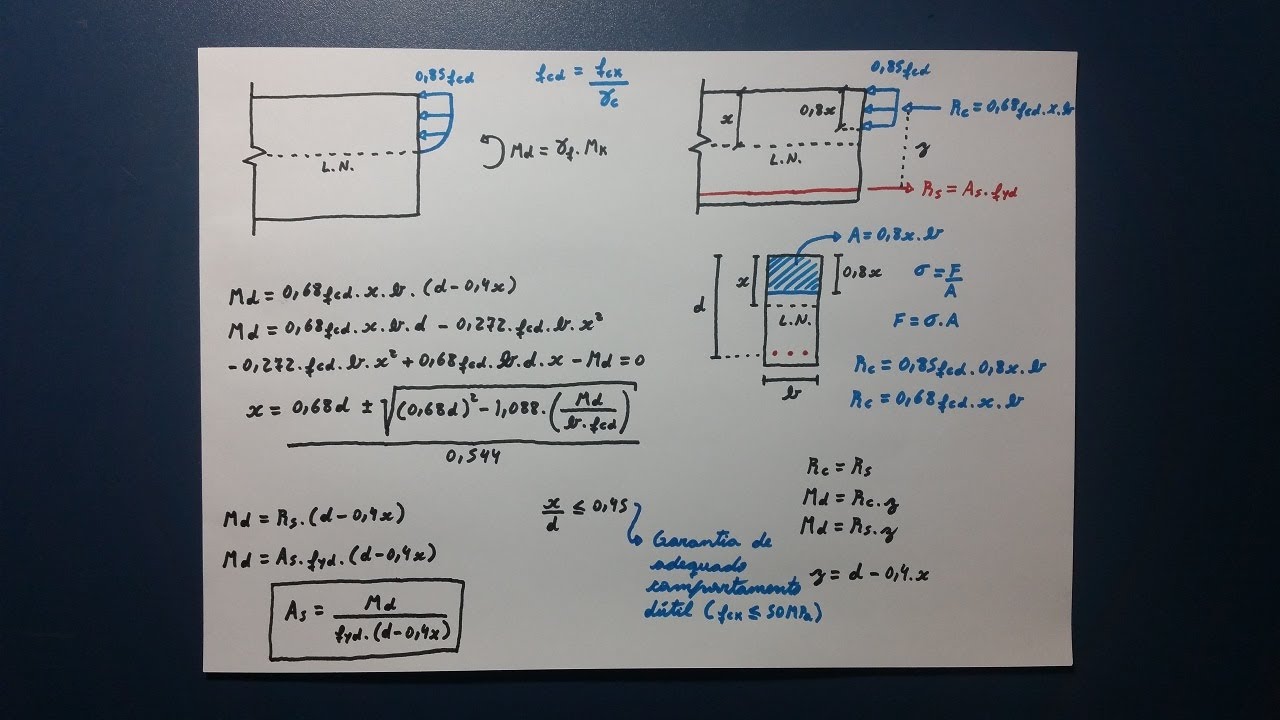 0,85fcd
fcd = fck/γc
Md = γf.Mk
L.N.
0,85fcd
x
0,8x
Rc = 0,68fcd.x.b
L.N.
z
Rs = As.fyd
A = 0,8x.b
d
x
0,8x
L.N.
b
σ = F/A
F = σ.A
Rc = 0,85fcd.0,8x.b
Rc = 0,68fcd.x.b
Md = 0,68fcd.x.b.(d-0,4x)
Md = 0,68fcd.x.b.d - 0,272.fcd.b.x²
-0,272.fcd.b.x² + 0,68fcd.b.d.x - Md = 0
x = 0,68d ± √((0,68d)² - 1,088.(Md/b.fcd))
0,544
Md = Rs.(d-0,4x)
Md = As.fyd.(d-0,4x)
As = Md/fyd.(d-0,4x)
x/d ≤ 0,45
Garantia de
adequado
comportamento
dútil (fck ≤ 50MPa)
Rc = Rs
Md = Rc.z
Md = Rs.z
z = d - 0,4.x